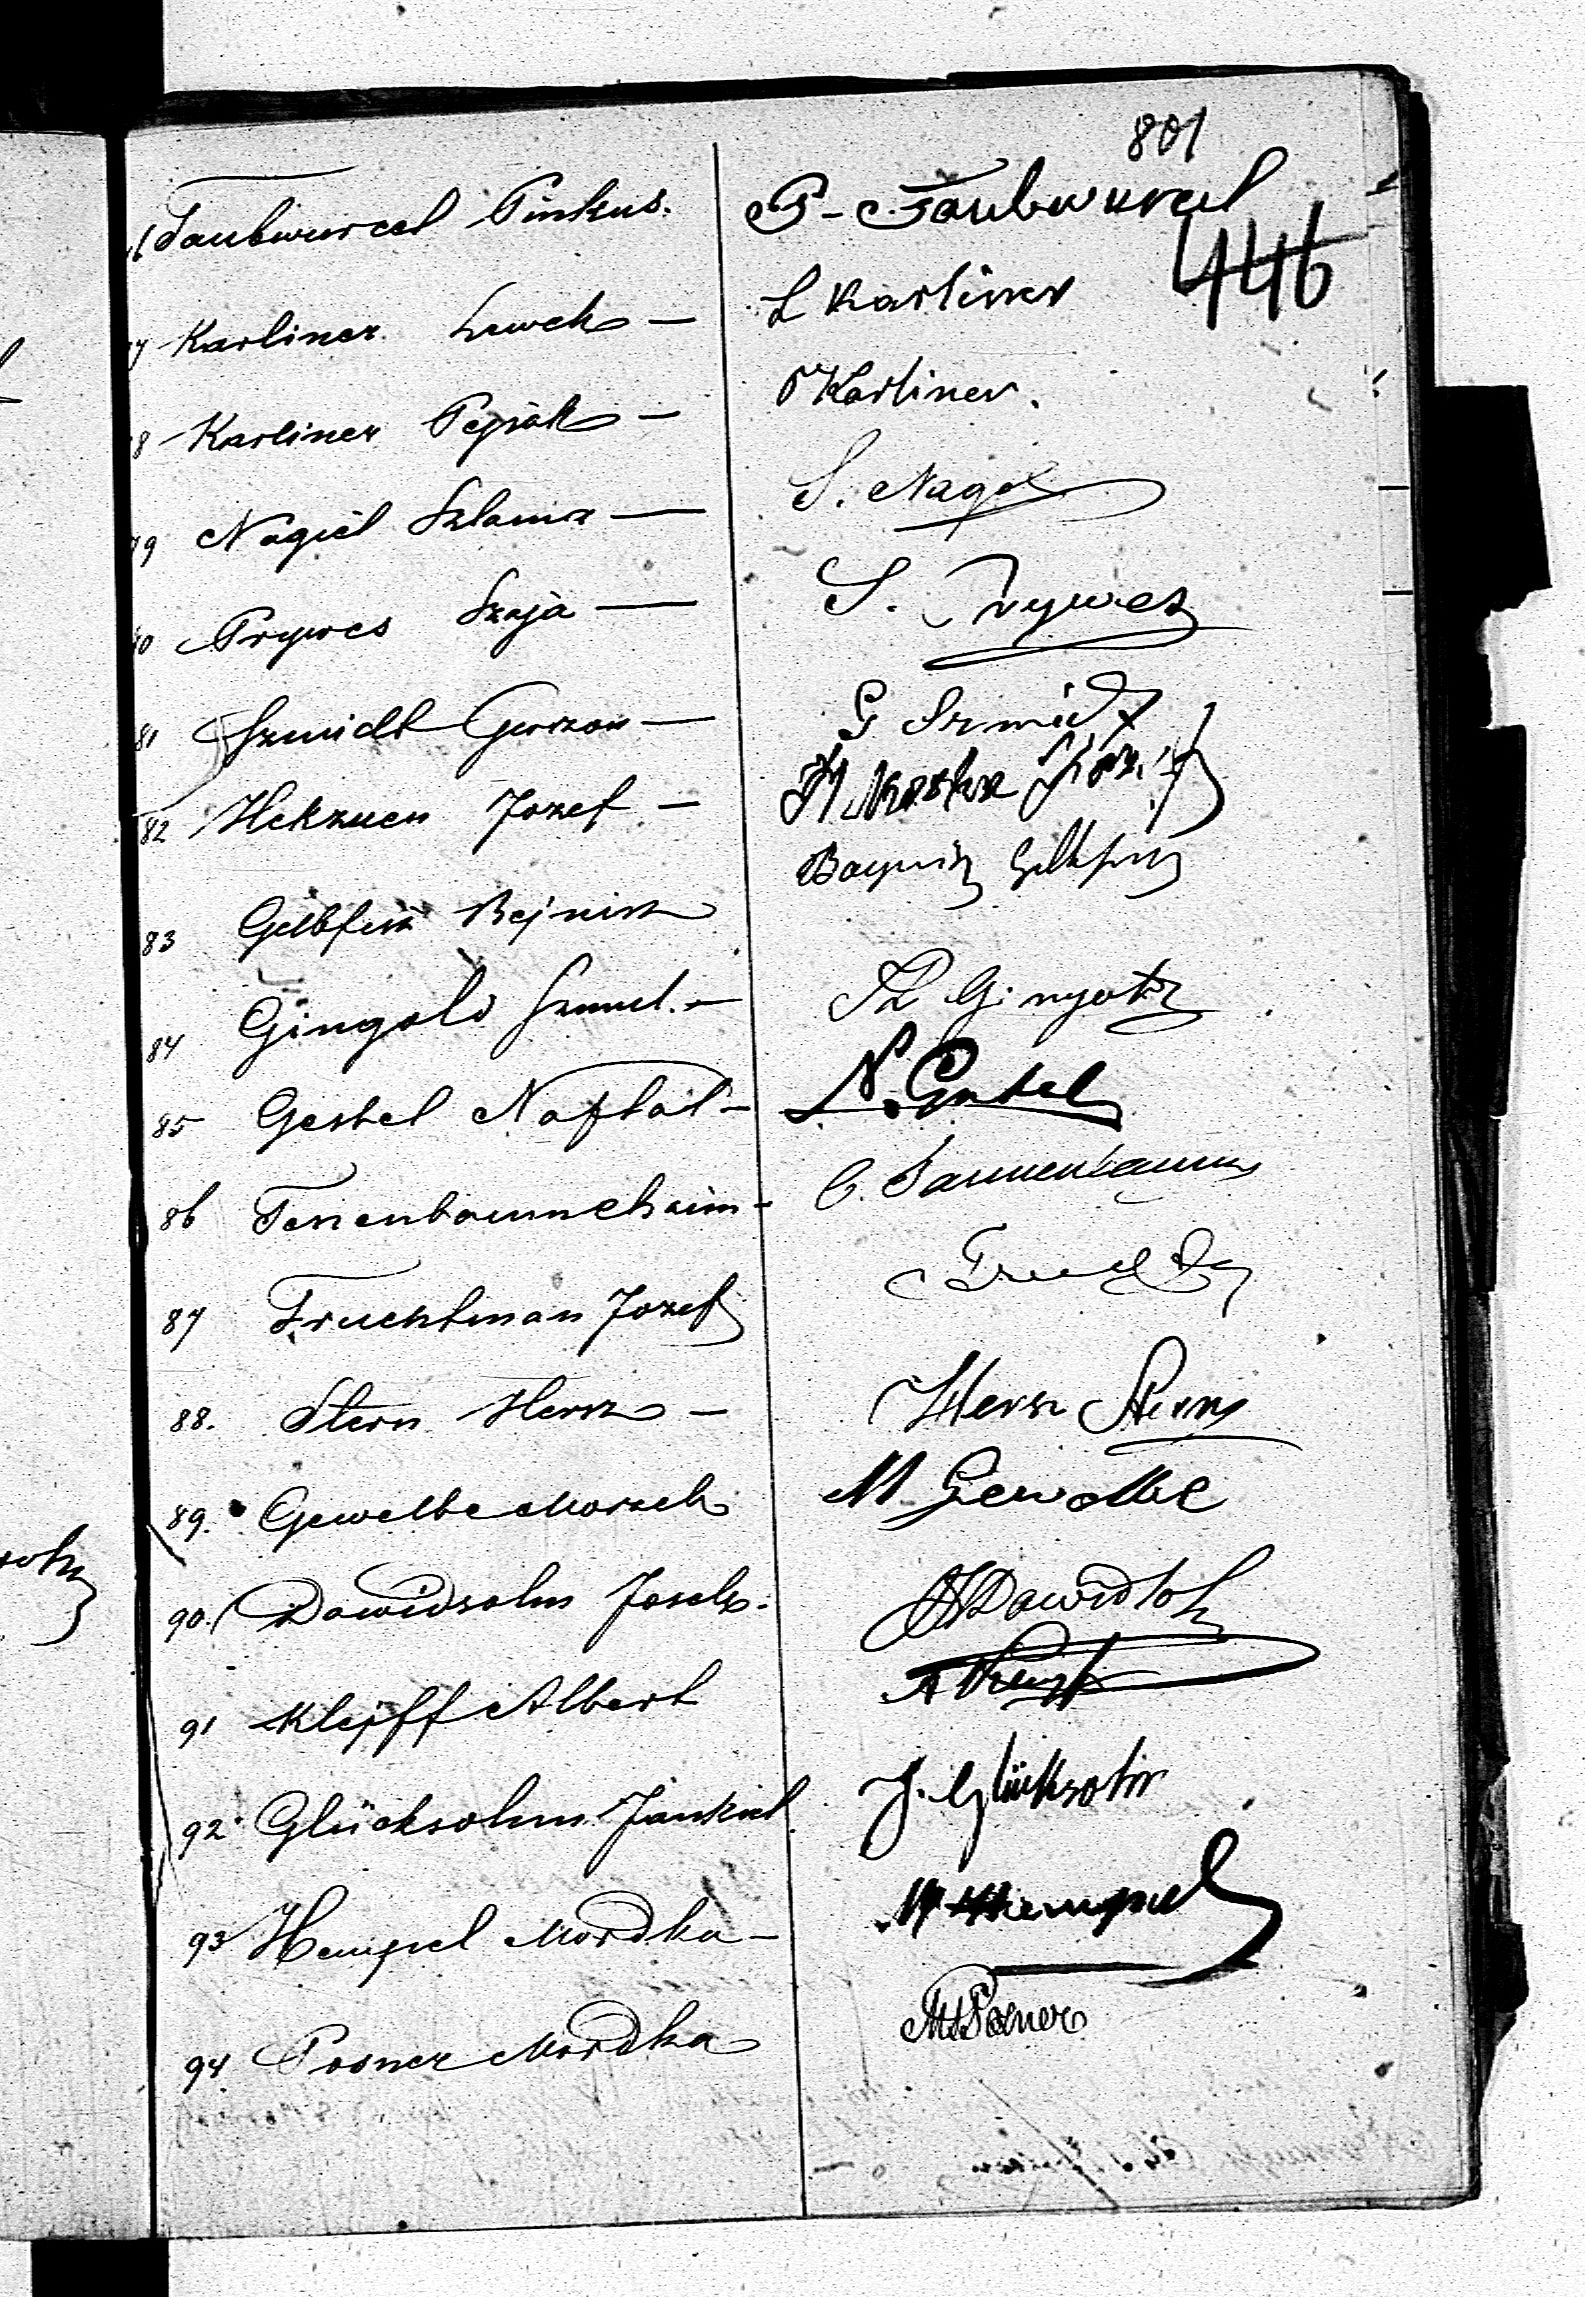 801
Taubwurcel Pinkus. P. Taubwurcel
446
Karliner Lewek — L Karliner
Karliner Pejsak — P Karliner.
79 Nagiel Szlama — S. Nagel
80 Prywes Szaja — S. Prywes
81 Szmidt Gerszon — G Szmidt
82 Jozef —
83 Gelbfisz Bejnisz Gelbfisz
84 Gingold Szmul. —
85 Gestel Naftal — N. Gestel
86 Tenenbaum Chaim — C. Tannenbaum
87 Fruchtman Jozef
88. Stern Hersz — Hersz Stern
89. Gewelbe Moszek M Gewelbe
90. Dawidsohn Josek. Dawidsoh
91 Klejff Albert
92 Glücksohn Jankiel J. Glüksohn
93 Hempel Mordka — M Hempel
94 Posner Mordka M. Posner